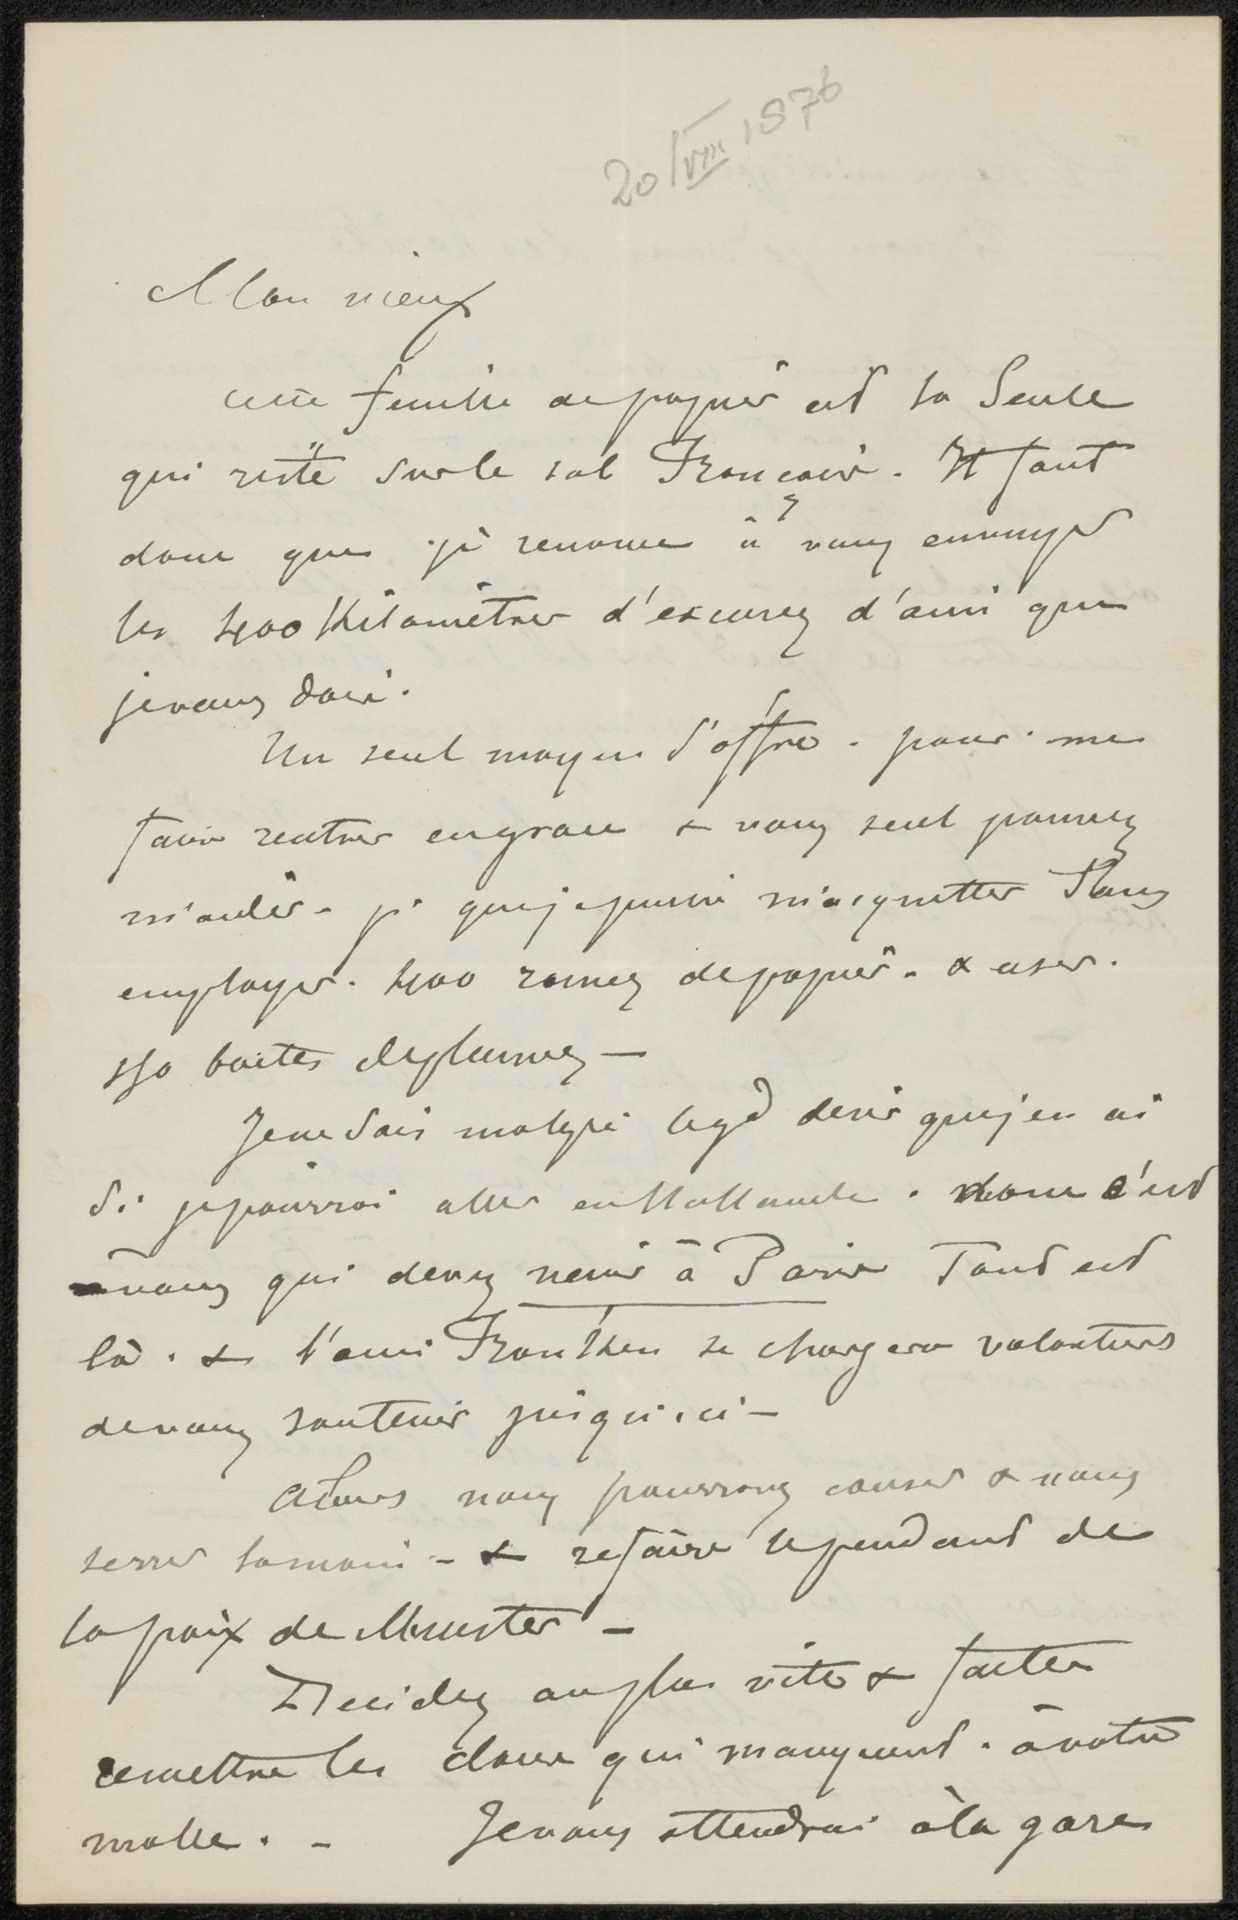 20/VIII 1876
Mon vieux
cette feuille de papier est la Seule
qui reste sur le sol Français. Il faut
donc que je renonce à vous envoyer
les 400 Kilomètres d'excuses d'ami que
je vous dois.
Un seul moyen s'offre. pour me
faire rentrer en grace & vous seul pouvez
m'aider - que je puisse m'acquitter Sans
employer. 400 rames de papier. & user.
boites de plumes —
Je ne Sais malgré le gd desir que j'en ai
Si je pourrai aller en Hollande. donc c'est
vous qui devez venir à Paris Tout est
là. & l'ami se chargera volontiers
de vous soutenir jusqu'ici —
Alors nous pourrons causer & nous
serrer la main - & refaire le pendant de
la paix de Munster —
Decidez au plus vite & faites
remettre les clous qui manquent. à votre
malle. - Je vous attendrai à la gare